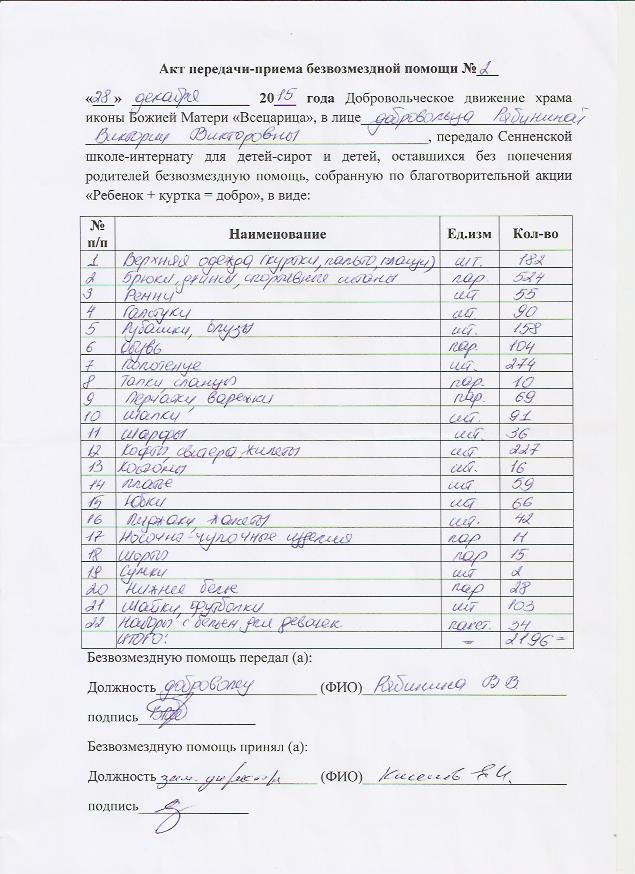 Акт передачи-приема безвозмездной помощи № 2
«28» декабря 2015 года Добровольческое движение храма
иконы Божией Матери «Всецарица», в лице добровольца Рябининой
Виктории Викторовны, передало Сенненской
школе-интернату для детей-сирот и детей, оставшихся без попечения
родителей безвозмездную помощь, собранную по благотворительной акции
«Ребенок + куртка = добро», в виде:
№ п/п Наименование Ед.изм Кол-во
1 Верхняя одежда (куртки, пальто, плащи) шт. 182
2 Брюки, джинсы, спортивные штаны пар. 524
3 Ремни шт 55
4 Галстуки шт 90
5 Рубашки, блузы шт. 158
6 Обувь пар. 104
7 Полотенце шт. 274
8 Тапки, сланцы пар. 10
9 Перчатки, варежки пар. 69
10 Шапки шт. 91
11 Шарфы шт. 36
12 Кофты, свитера, жилеты шт. 227
13 Костюмы шт. 16
14 Платье шт 59
15 Юбки шт 66
16 Пиджаки, жакеты шт. 42
17 Носочно-чулочные изделия пар 11
18 Шорты пар 15
19 Сумки шт 2
20 Нижнее белье пар 28
21 Майки, футболки шт 103
22 Наборы с бельем для девочек пакет. 34
ИТОГО: – 2196 =
Безвозмездную помощь передал (а):
Должность доброволец (ФИО) Рябинина В В.
подпись
Безвозмездную помощь принял (а):
Должность зам. директора (ФИО)
подпись